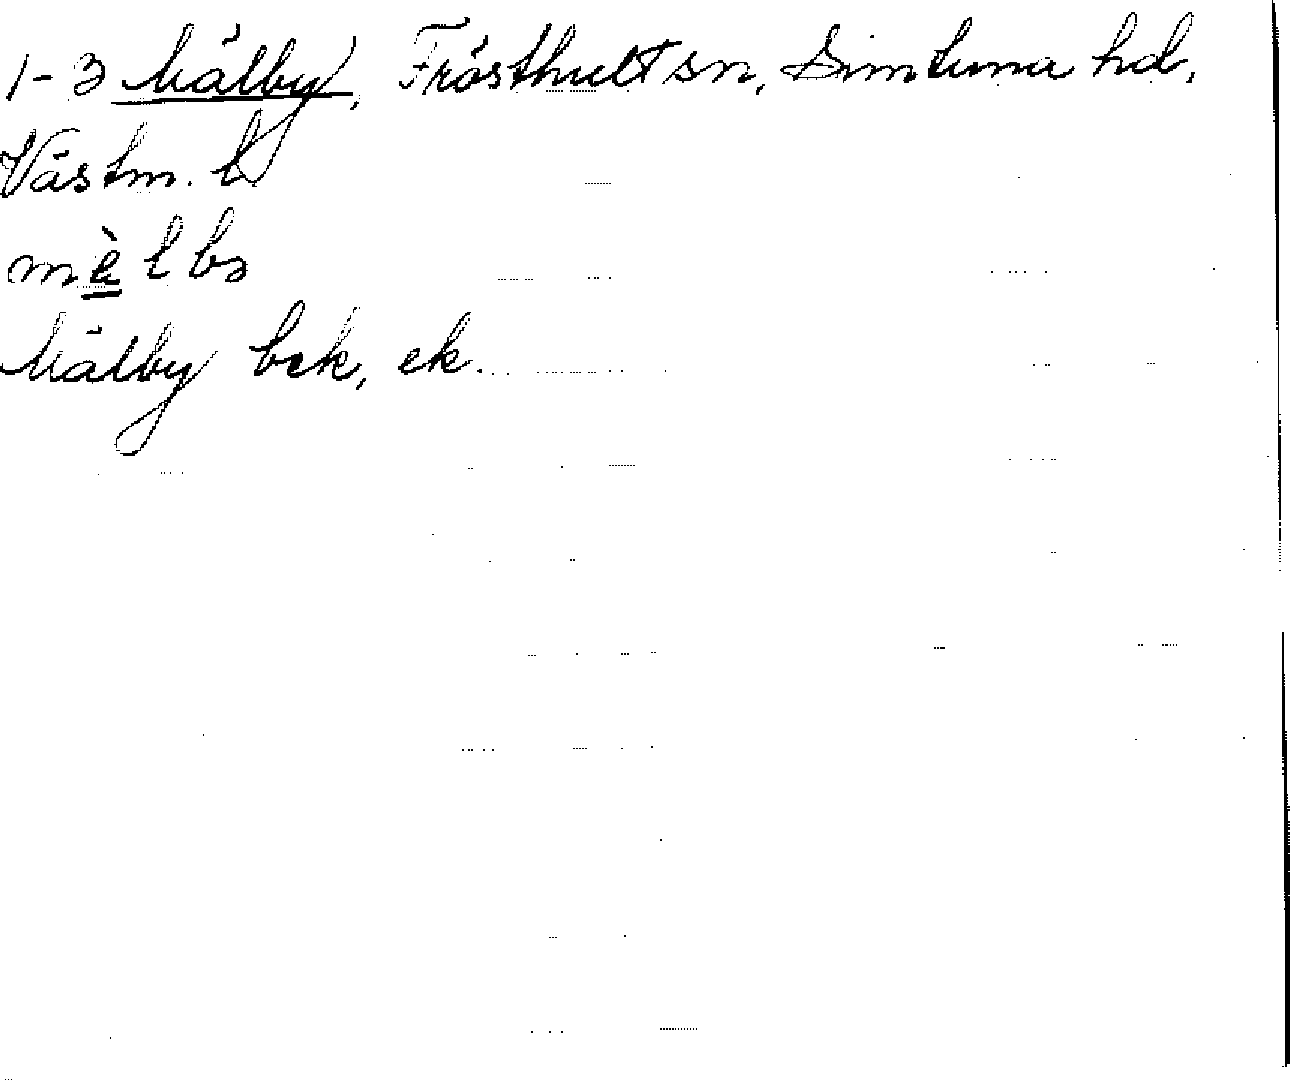 1-3 Mälby, Frösthult sn, Simtuna hd,
Västm. l
mèlbɜ
Mälby bek, ek.